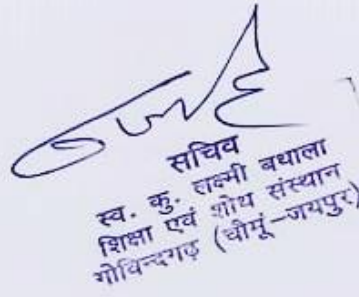 सचिव
स्व. कु. लक्ष्मी बधाला
शिक्षा एवं शोध संस्थान
गोविन्दगढ़ (चौमूं-जयपुर)